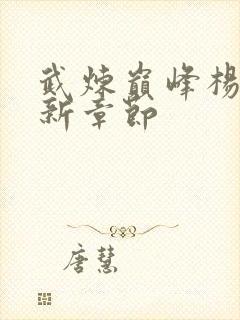 武煉巔峰楊
新章節
唐慧